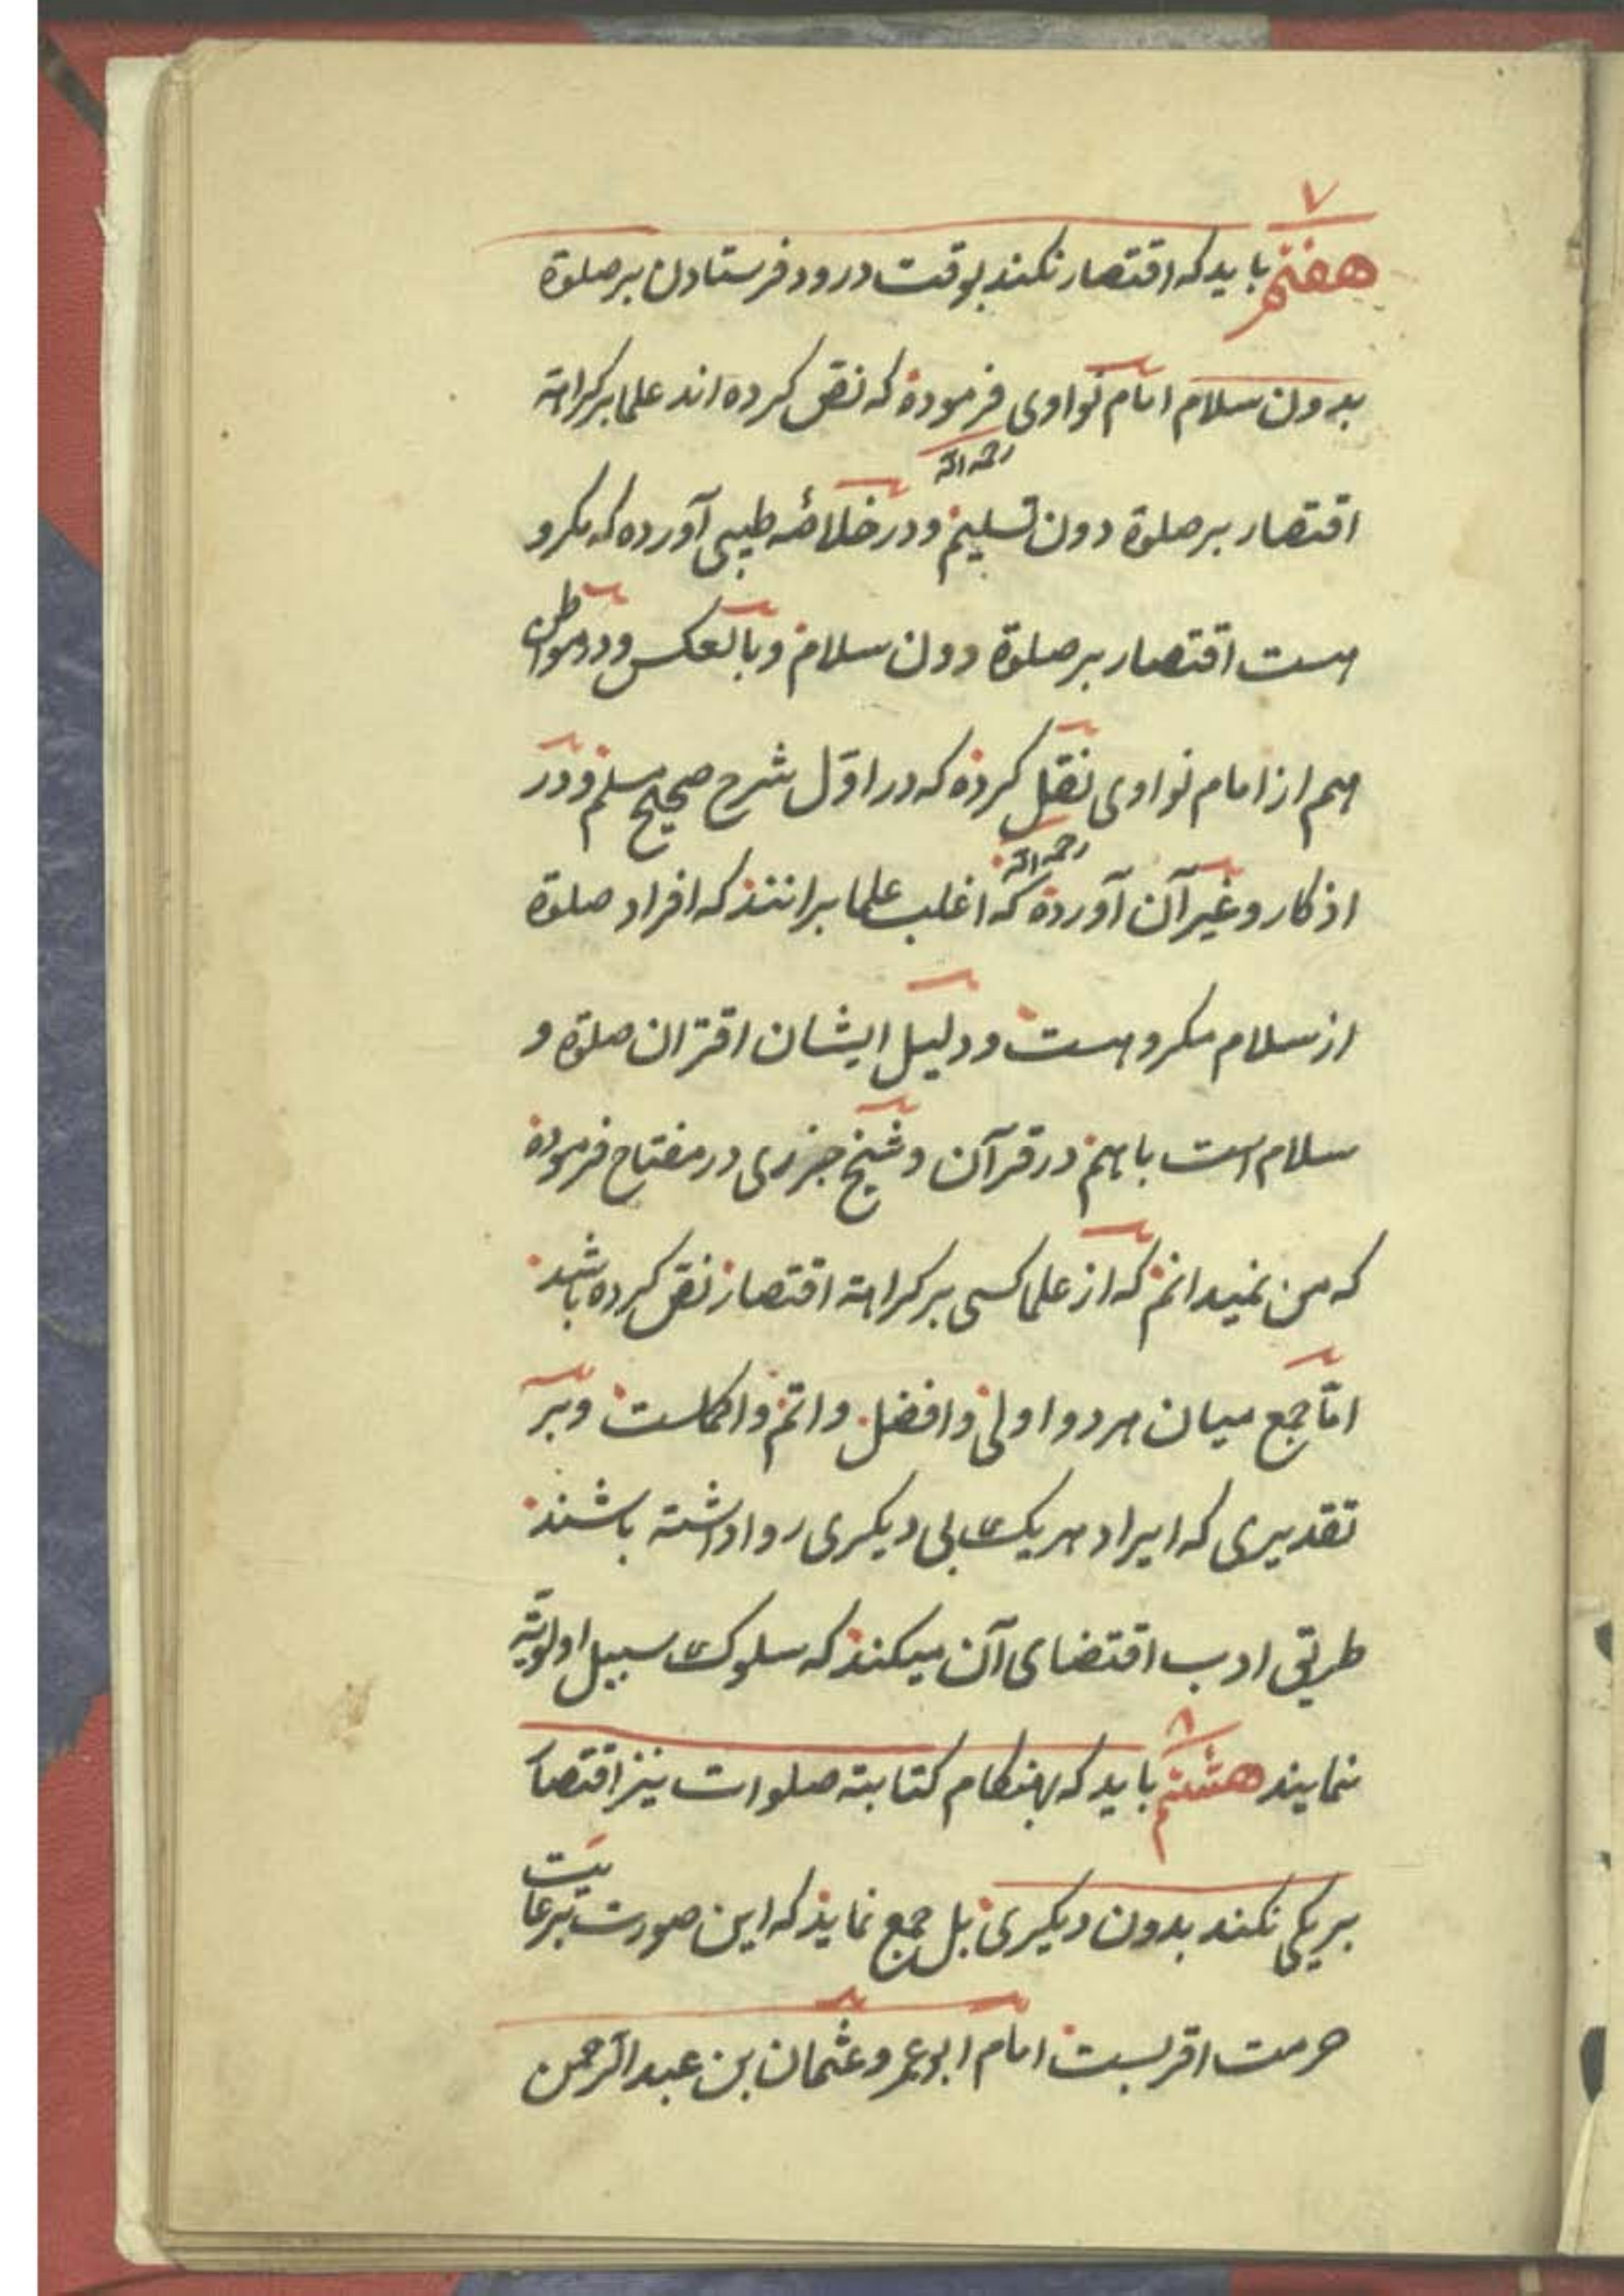 ۷
هفتم باید که اقتصار نکنند بوقت درود فرستادن بر صلوة
بدون سلام امام نواوی فرموده که نص کرده اند علما بر کراهة
رحمه الله
اقتصار بر صلوة دون تسلیم و در خلاصه طیبی آورده که مکرو
هست اقتصار بر صلوة دون سلام و بالعکس و در مواطن
هم از امام نواوی نقل کرده که در اوّل شرح صحیح مسلم و در
رحمه الله
اذکار و غیر آن آورده که اغلب علما برانند که افراد صلوة
از سلام مکروهست و دلیل ایشان اقتران صلوة و
سلام است باهم در قرآن و شیخ جزری در مفتاح فرموده
که من نمیدانم که از علما کسی بر کراهة اقتصار نص کرده باشد
امّا جمع میان هر دو اولی و افضل و اتم و اکملست و بر
تقدیری که ایراد هر یک بی دیکری روا داشته باشند
طریق ادب اقتضای آن میکند که سلوک سبیل اولویّة
۸
نمایند هشتم باید که بهنکام کتابة صلوات نیز اقتصا
بر یکی نکنند بدون دیکری بل جمع نماید که این صورت برعایت
حرمت اقربست امام ابو عمرو عثمان بن عبد الرحمن